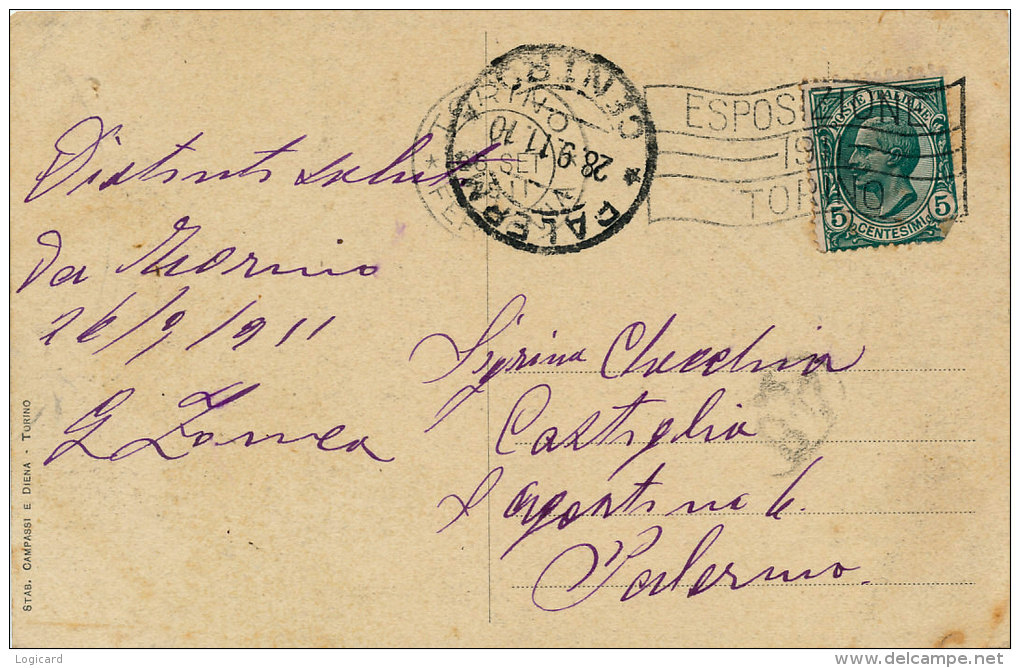 Distinti saluti
da Torino
26/9/911
G Zanca
STAB. CAMPASSI E DIENA - TORINO
TORINO
SET
PALERMO
CENTRO
28.9.11 10
ESPOSIZIONE
TORINO
POSTE ITALIANE
5 5
CENTESIMI
Sigrina Checchina
Castiglia
S Agostino 6.
Palermo.
Logicard
delcampe.net